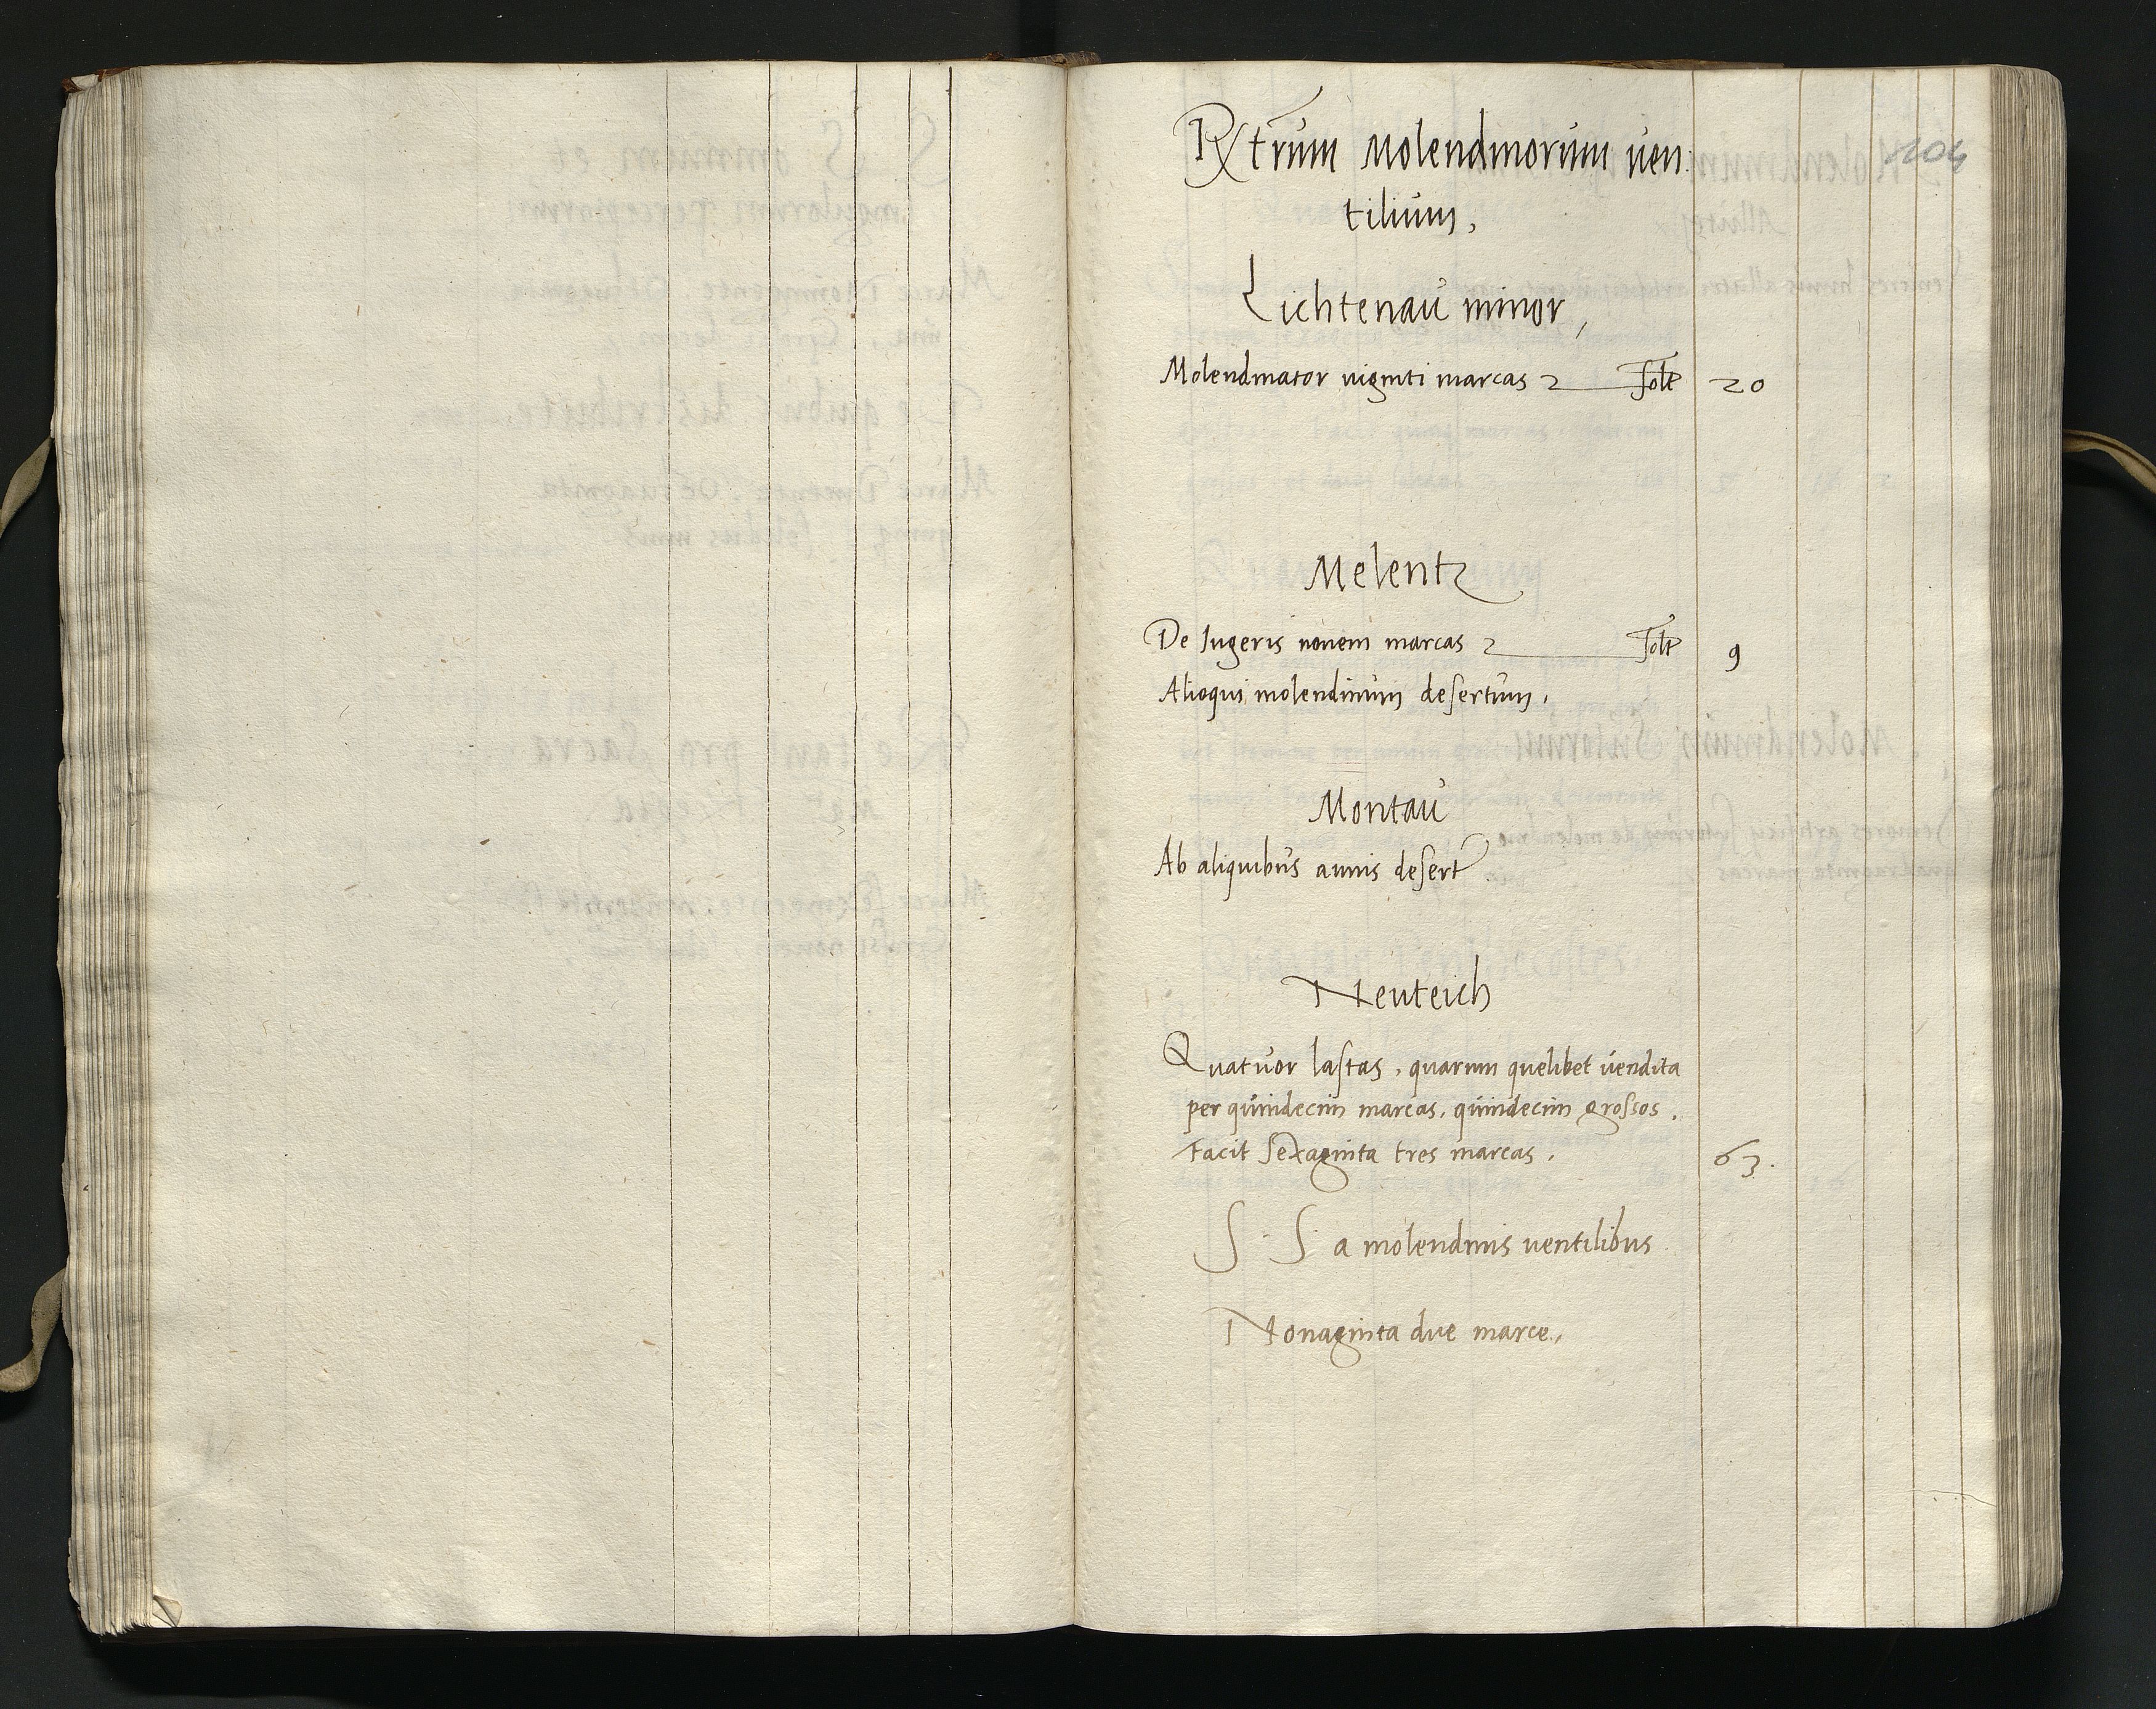 104
Rxtrum Molendinorum uen:
tilium,
Lichtenau minor,
Molendinator uiginti marcas solt 20
Melentz
De Iugeris nouem marcas solt 9
Alioqui molendinum desertum,
Montau
Ab aliquibus annis desert
Neuteich
Quatuor lastas, quarum quelibet uendita
per quindecim marcas, quindecim grossos,
Facit sexaginta tres marcas, 63.
S S a molendinis uentilibus
Nonaginta due marce,